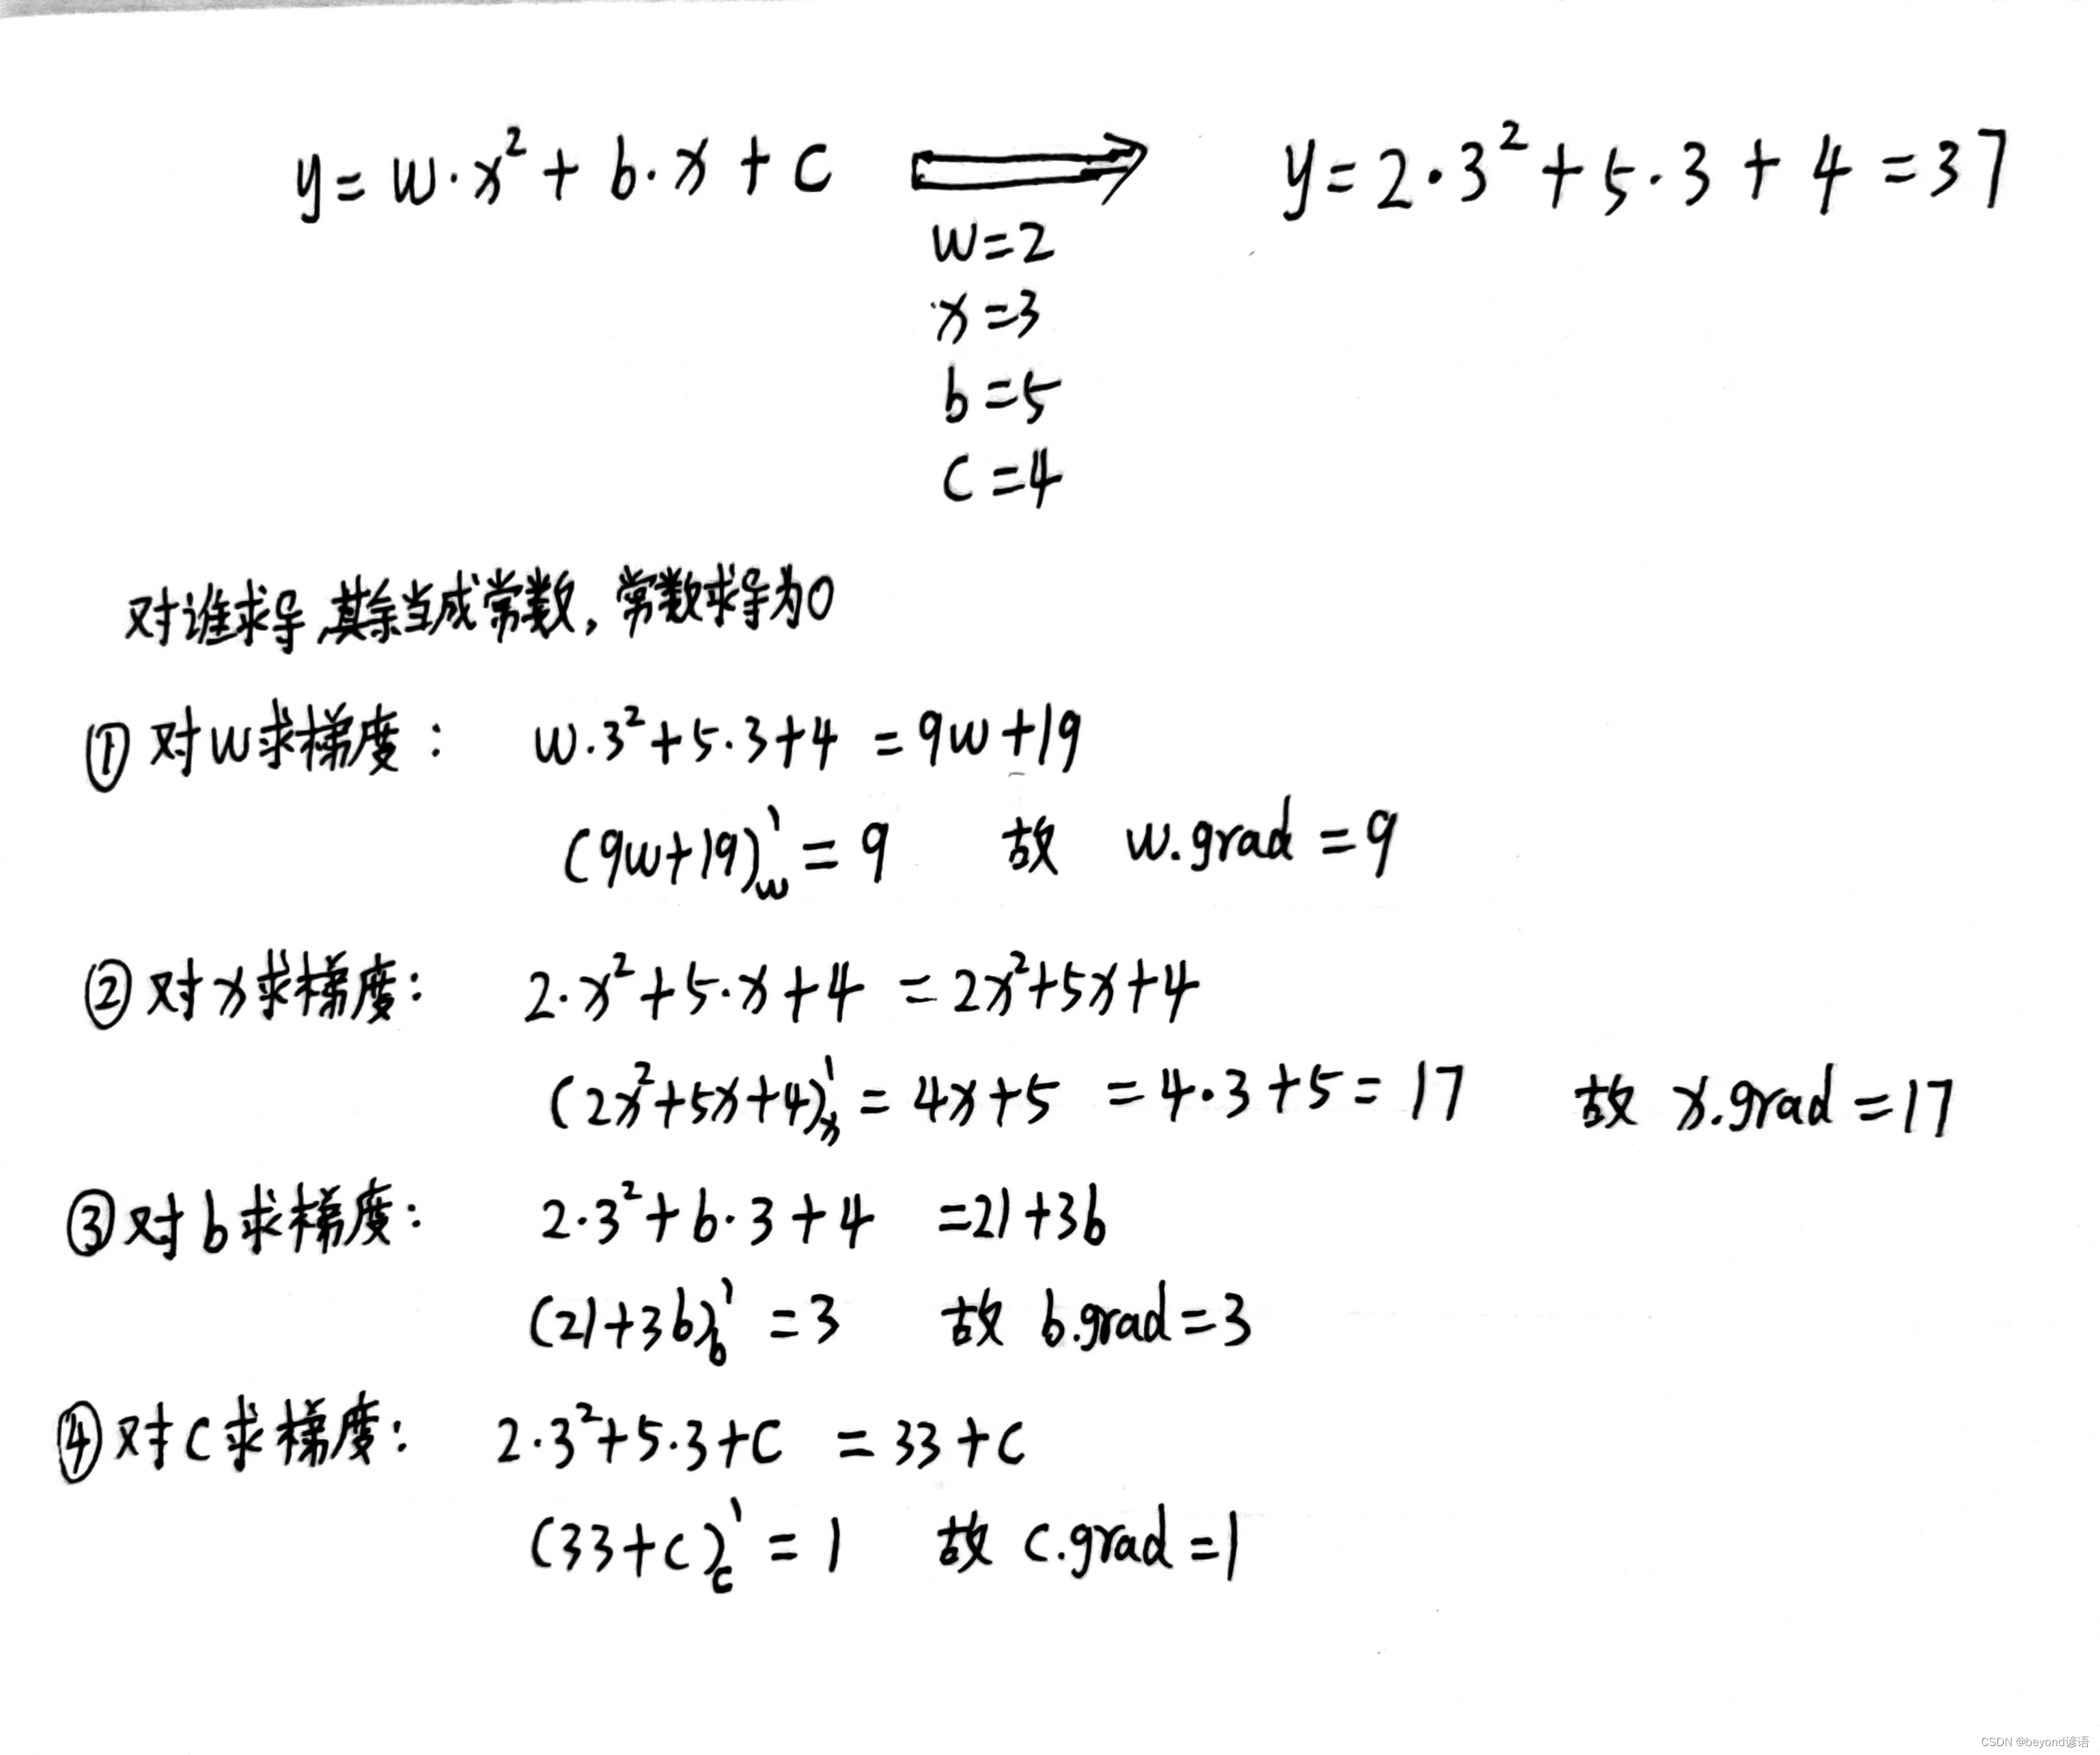 y=w·x²+b·x+c ⟹ y=2·3²+5·3+4=37
w=2
x=3
b=5
c=4
对谁求导,其余当成常数,常数求导为0
① 对w求梯度: w·3²+5·3+4=9w+19
(9w+19)'w=9 故 w.grad=9
② 对x求梯度: 2·x²+5·x+4=2x²+5x+4
(2x²+5x+4)'x=4x+5=4·3+5=17 故 x.grad=17
③ 对b求梯度: 2·3²+b·3+4=21+3b
(21+3b)'b=3 故 b.grad=3
④ 对c求梯度: 2·3²+5·3+c=33+c
(33+c)'c=1 故 c.grad=1
CSDN @beyond谚语